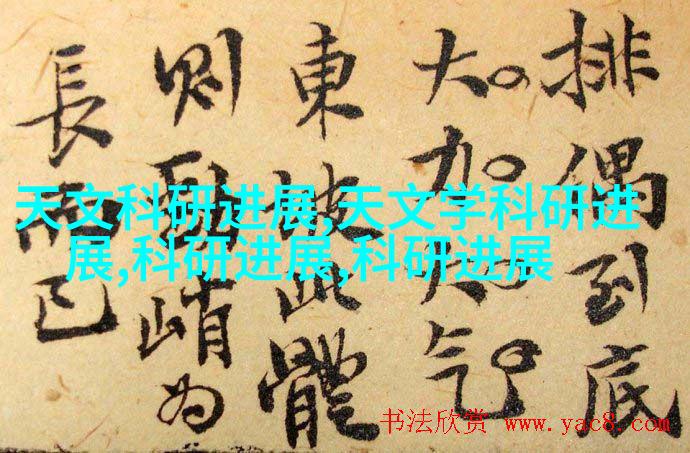 排偶到底
大力大气
東坡此體
則峭為
長而已
天文科研进展,天文学科研进
展,科研进展,科研进展
书法欣赏 www.yac8.com